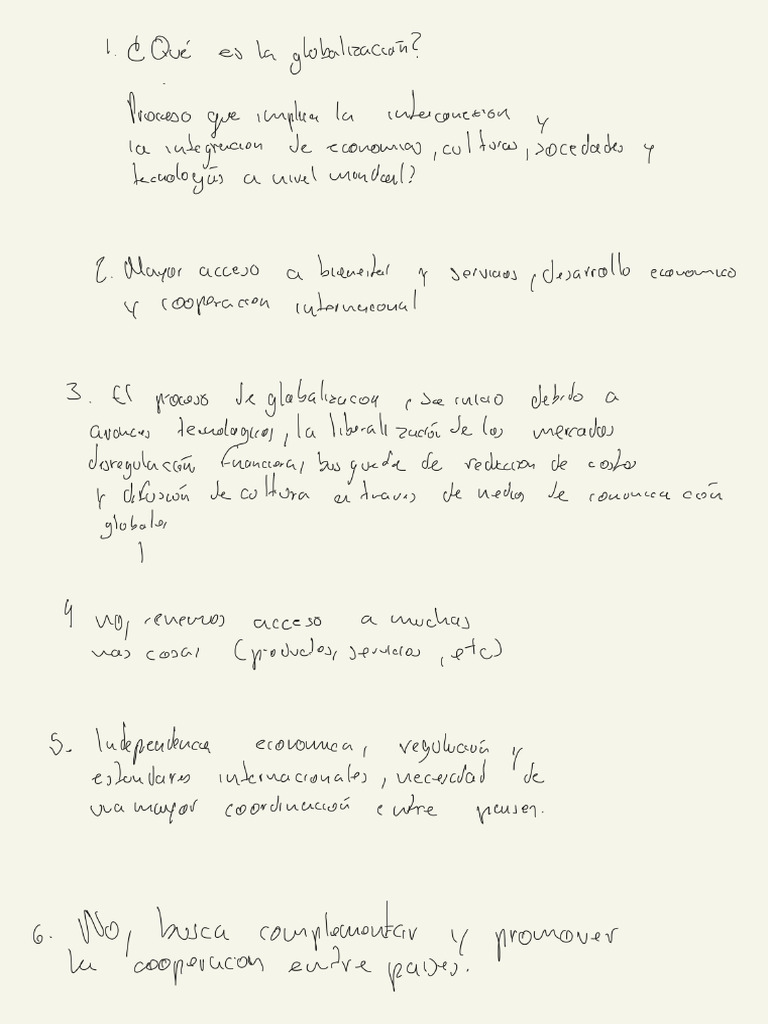 1. ¿Qué es la globalización?
Proceso que implica la interconexion y
la integracion de economias, culturas, sociedades y
tecnologías a nivel mundial?
2. Mayor acceso a bienestar y servicios, desarrollo economico
y cooperacion internacional
3. El proceso de globalizacion, se inicio debido a
avances tecnologicos, la liberalización de los mercados
disregulación financiera, busqueda de reduccion de costos
y difusión de cultura a traves de medios de comunicación
globales
4 no, tenemos acceso a muchas
mas cosas (productos, servicios, etc)
5. Independencia economica, regulación y
estandares internacionales, necesidad de
una mayor coordinación entre paises.
6. No, busca complementar y promover
la cooperacion entre paises.